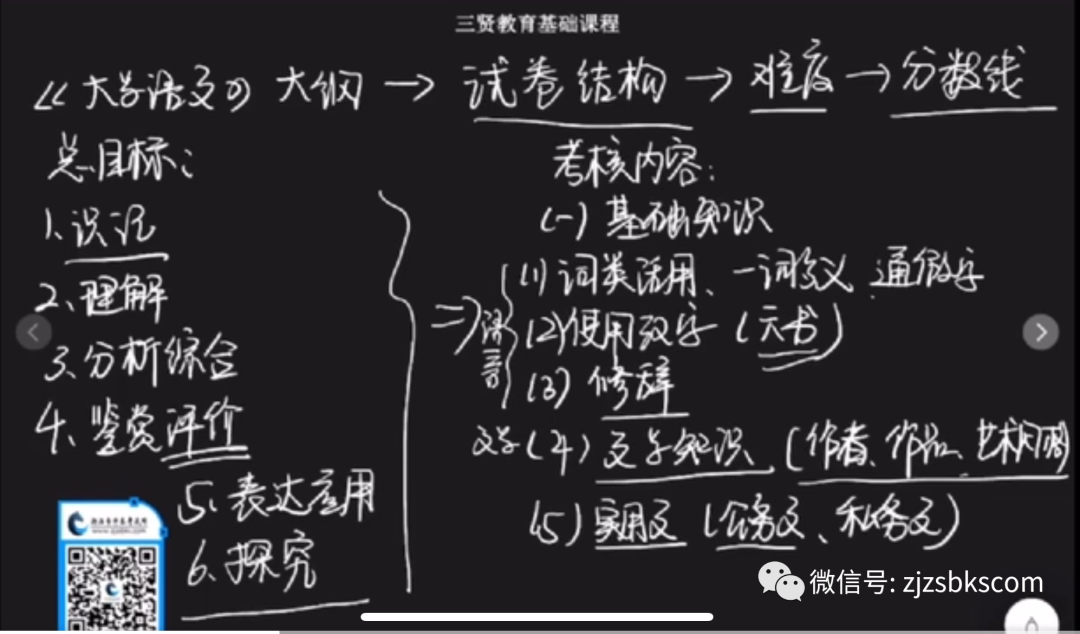 三贤教育基础课程
《大学语文》大纲 → 试卷结构 → 难度 → 分数线
总目标:
1、识记
2、理解
3、分析综合
4、鉴赏评价
5、表达应用
6、探究
考核内容:
(一) 基础知识
语言
(1) 词类活用、一词多义、通假字
(2) 使用文字 (六书)
(3) 修辞
文学 (4) 文学知识 (作者、作品、艺术风格)
(5) 实用文 (公务文、私务文)
微信号: zjzsbkscom